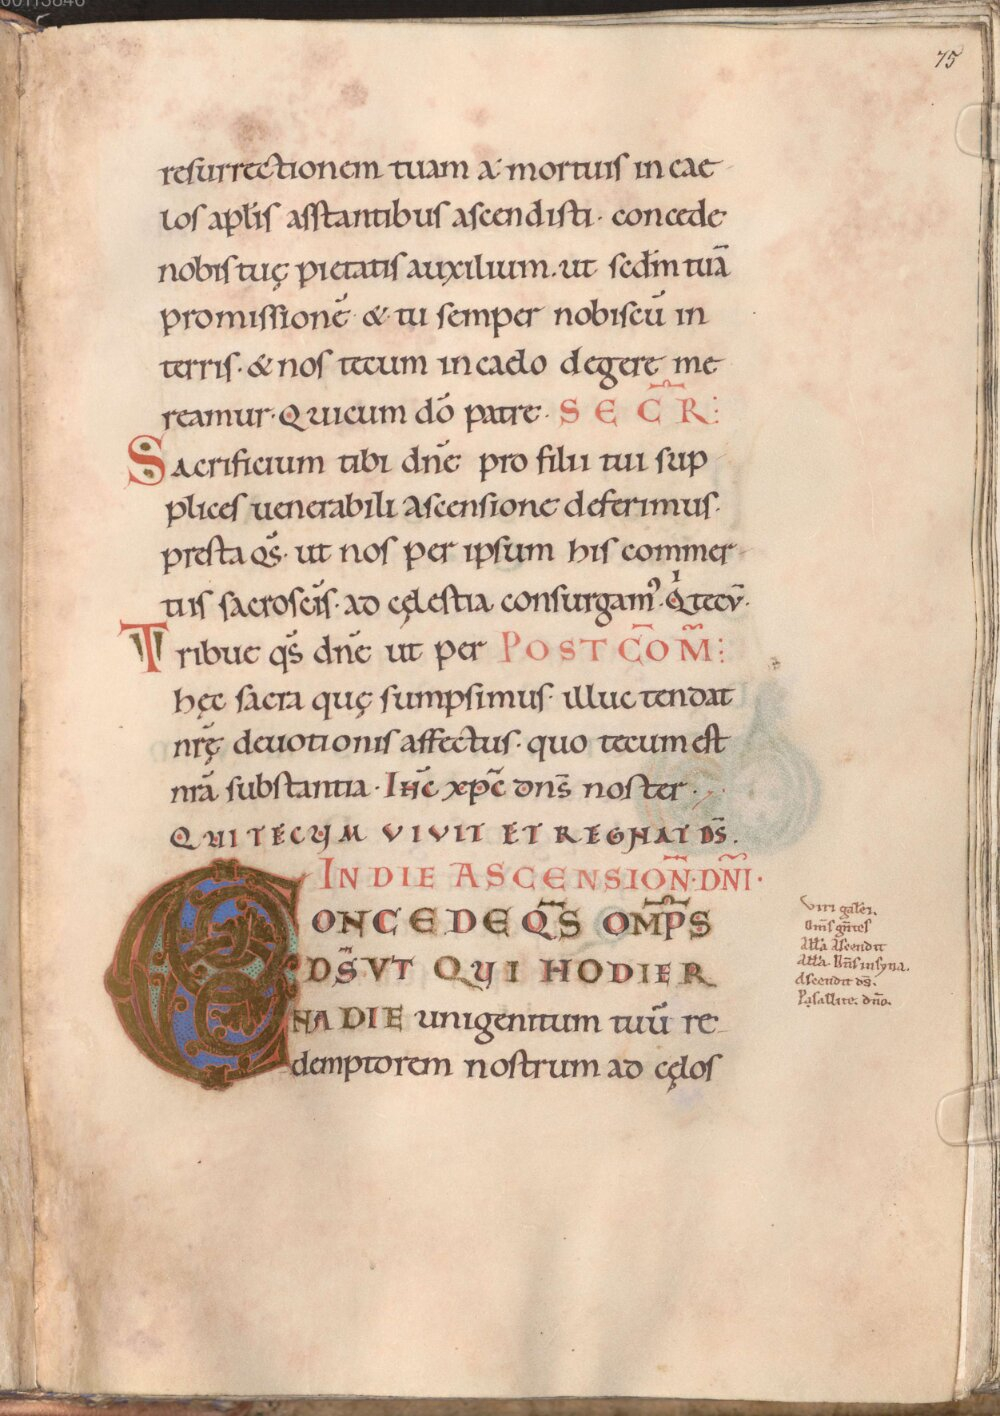 75
resurrectionem tuam a mortuis in cae
los aplīs asstantibus ascendisti· concede
nobis tuę pietatis auxilium. ut sedm̄ tuā
promissionē & tu semper nobiscū in
terris· & nos tecum in caelo degere me
reamur· Qui cum dō patre· SECR̄:
Sacrificium tibi dn̄e pro filii tui sup
plices uenerabili Ascensione deferimus·
presta qs̄· ut nos per ipsum his commer
tiis sacroscīs· ad cęlestia consurgam᾽· Q tecū·
Tribue qs̄ dn̄e ut per POST COM̄:
hęc sacra quę sumpsimus· illuc tendat
nr̄ę deuotionis affectus· quo tecum est
nr̄a substantia· Ihc̄ xpc̄ dns̄ noster·
QUI TECUM VIVIT ET REGNAT DS̄.
IN DIE ASCENSION̄· DN̄I·
CONCEDE QS̄ OMP̄S
DS̄ VT QUI HODIER
NA DIE unigenitum tuū re
demptorem nostrum ad cęlos
Viri galei.
Om̄s gn̄tes
Alla Ascendit
Alla. Dn̄s in syna.
Ascendit ds̄.
Psallite. dn̄o.